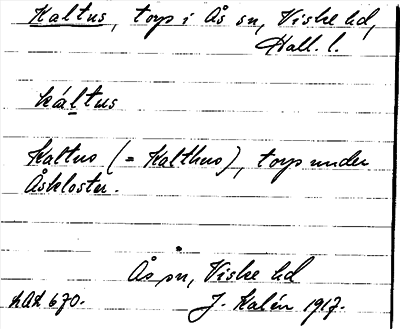 Kaltus, torp i Ås sn, Viske hd,
Hall. l.
káltus
Kaltus (= Kalthus), torp under
Åskloster.
Ås sn, Viske hd
KAK 670. J. Kalén 1917.